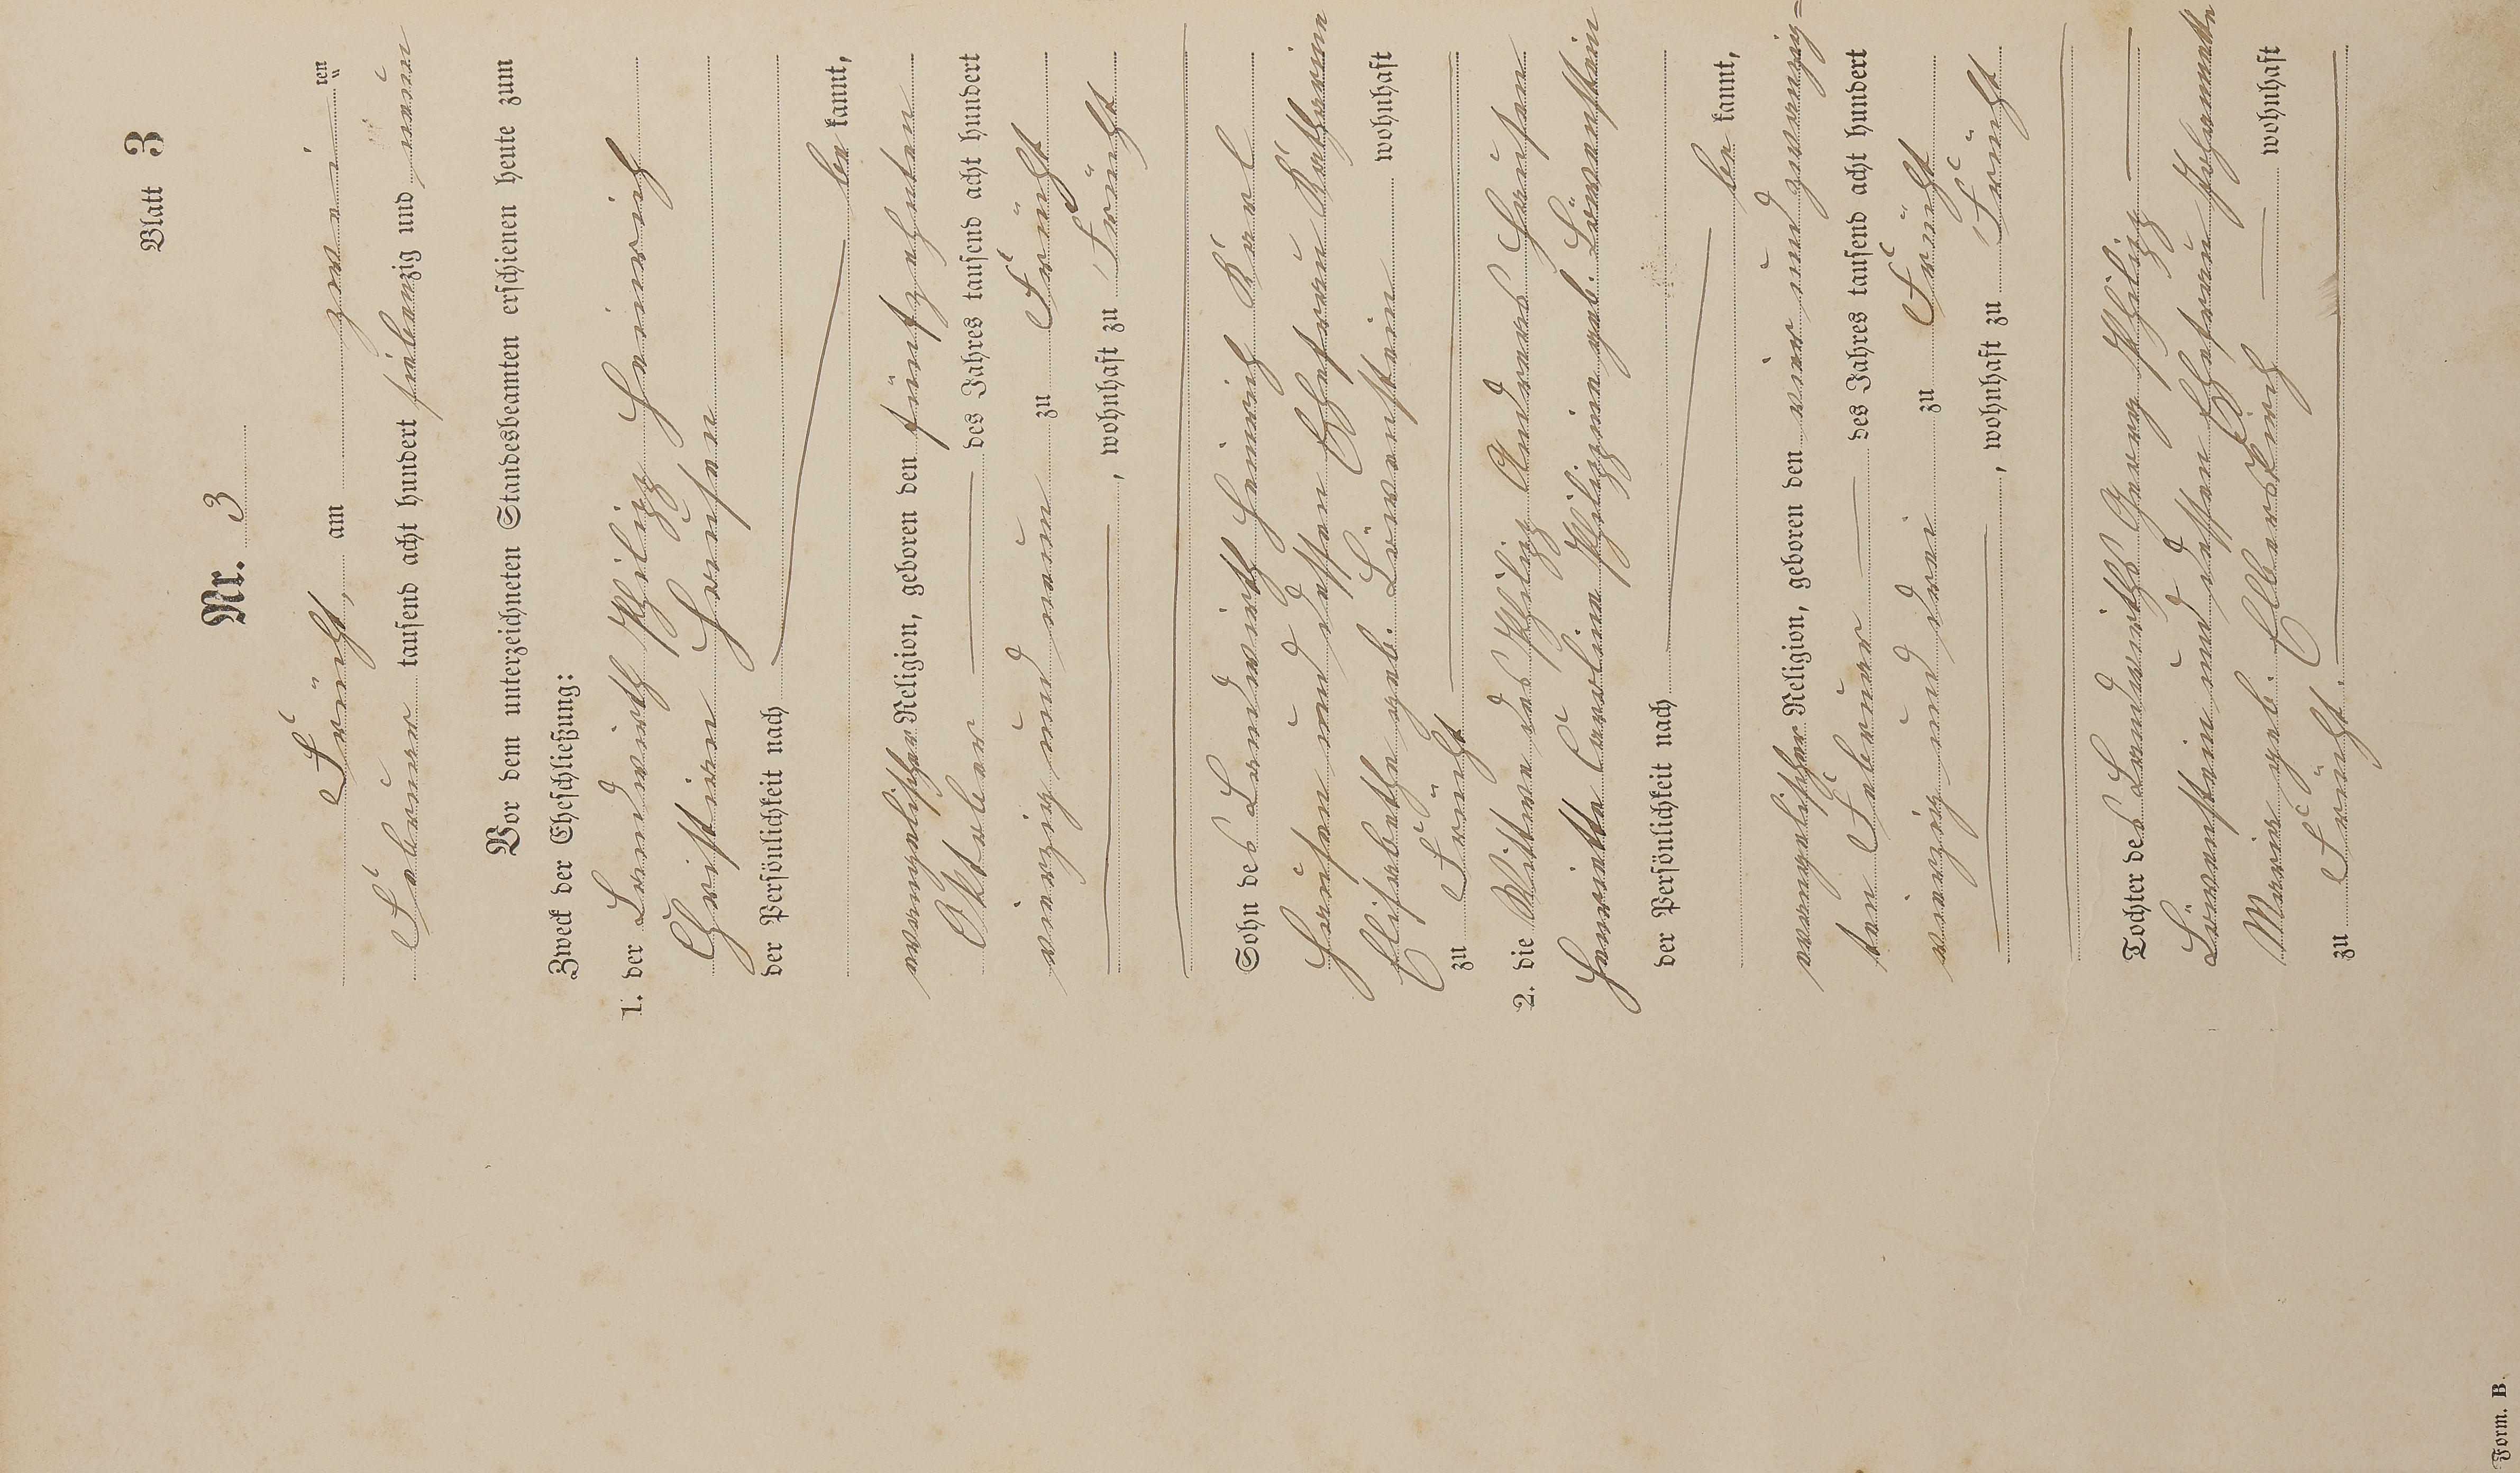 Blatt 3
Nr. 3
Frücht, am zwei ten
Februar tausend acht hundert siebenzig und neun
Vor dem unterzeichneten Standesbeamten erschienen heute zum
Zweck der Eheschließung:
1. der Landwirth Philipp Heinrich
Christian Hausen
der Persönlichkeit nach
be kannt,
evangelischer Religion, geboren den fünfzehnten
Oktober des Jahres tausend acht hundert
vierzig und neun zu Frücht
, wohnhaft zu Frücht
Sohn des Landwirth Heinrich Karl
Hausen und dessen Ehefrau Katharina
Elisabetha geb. Löwenstein wohnhaft
zu Frücht
2. die Wittwe des Philipp Andreas Hausen
Henriette Carolina Philippine geb. Löwenstein
der Persönlichkeit nach
be kannt,
evangelischer Religion, geboren den vier und zwanzig=
ten Februar des Jahres tausend acht hundert
vierzig und drei zu Frücht
, wohnhaft zu Frücht
Tochter des Landwirths Georg Philipp
Löwenstein und dessen Ehefrau Johannette
Maria geb. Elberskirch wohnhaft
zu Frücht.
Form. B.